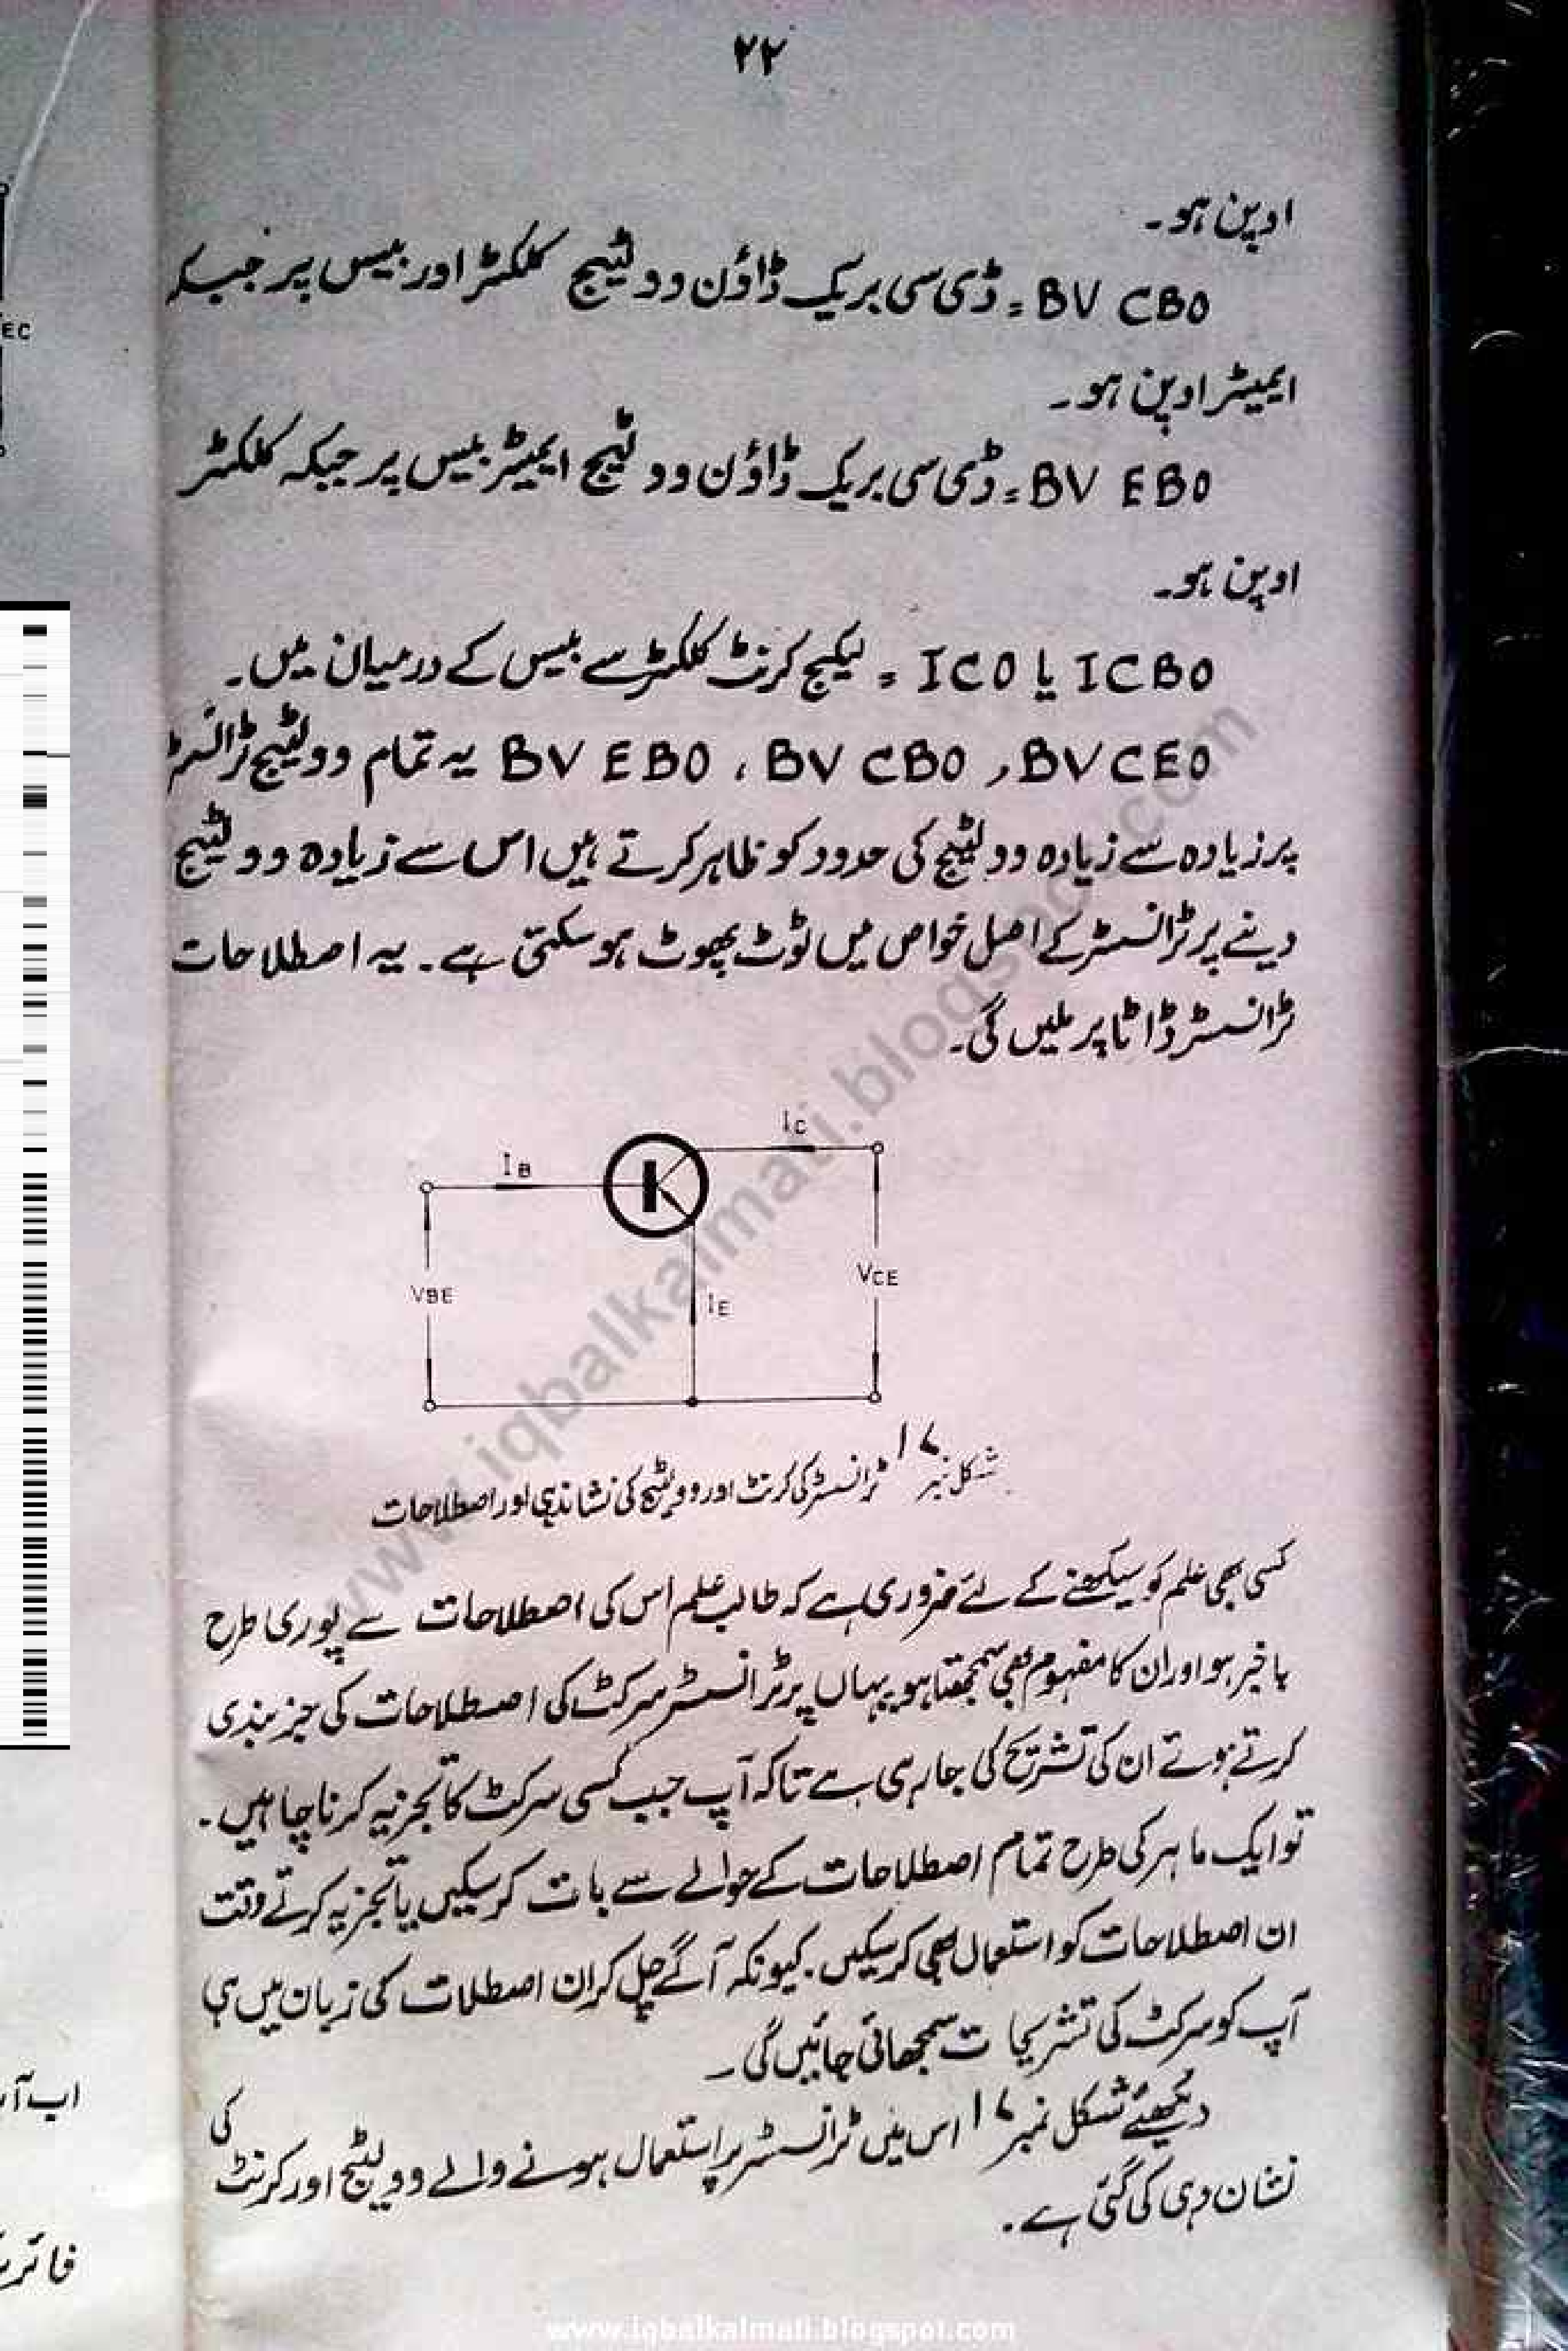 ۲۲
اوپن ہو۔
BV CBO = ڈی سی بریک ڈاؤن وولٹیج کلکٹر اور بیس پر جبکہ
ایمیٹر اوپن ہو۔
BV EBO = ڈی سی بریک ڈاؤن وولٹیج ایمیٹر بیس پر جبکہ کلکٹر
اوپن ہو۔
ICBO یا ICO = لیکیج کرنٹ کلکٹر سے بیس کے درمیان میں۔
BVCEO, BV CBO, BV EBO یہ تمام وولٹیج ٹرانسسٹر
پر زیادہ سے زیادہ وولٹیج کی حدود کو ظاہر کرتے ہیں اس سے زیادہ وولٹیج
دینے پر ٹرانسسٹر کے اصل خواص میں ٹوٹ پھوٹ ہوسکتی ہے۔ یہ اصطلاحات
ٹرانسسٹر ڈاٹا پر ملیں گی۔
IC
IB
VBE
VCE
IE
شکل نمبر ۱۷ ٹرانسسٹر کی کرنٹ اور وولٹیج کی نشاندہی اور اصطلاحات
کسی بھی علم کو سیکھنے کے لئے ضروری ہے کہ طالب علم اس کی اصطلاحات سے پوری طرح
باخبر ہو اور ان کا مفہوم بھی سمجھتا ہو یہاں پر ٹرانسسٹر سرکٹ کی اصطلاحات کی چیز بندی
کرتے ہوئے ان کی تشریح کی جارہی ہے تاکہ آپ جب کسی سرکٹ کا تجزیہ کرنا چاہیں۔
تو ایک ماہر کی طرح تمام اصطلاحات کے حوالے سے بات کرسکیں یا تجزیہ کرتے وقت
ان اصطلاحات کو استعمال بھی کرسکیں۔ کیونکہ آگے چل کر ان اصطلات کی زبان میں ہی
آپ کو سرکٹ کی تشریحات سمجھائی جائیں گی۔
دیکھئے شکل نمبر ۱۷ اس میں ٹرانسسٹر پر استعمال ہونے والے وولٹیج اور کرنٹ کی
نشان دہی کی گئی ہے۔
EC
اب آ
www.iqbalkalmati.blogspot.com
www.iqbalkalmati.blogspot.com